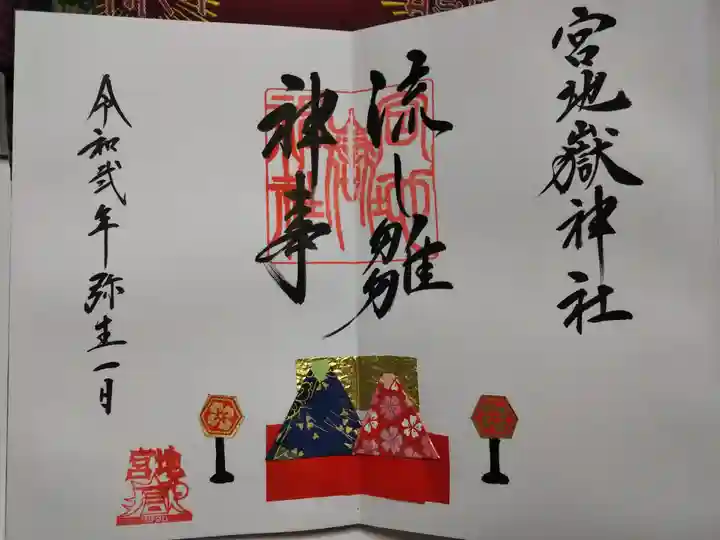 宮地嶽神社
流し雛
神事
令和弐年弥生一日